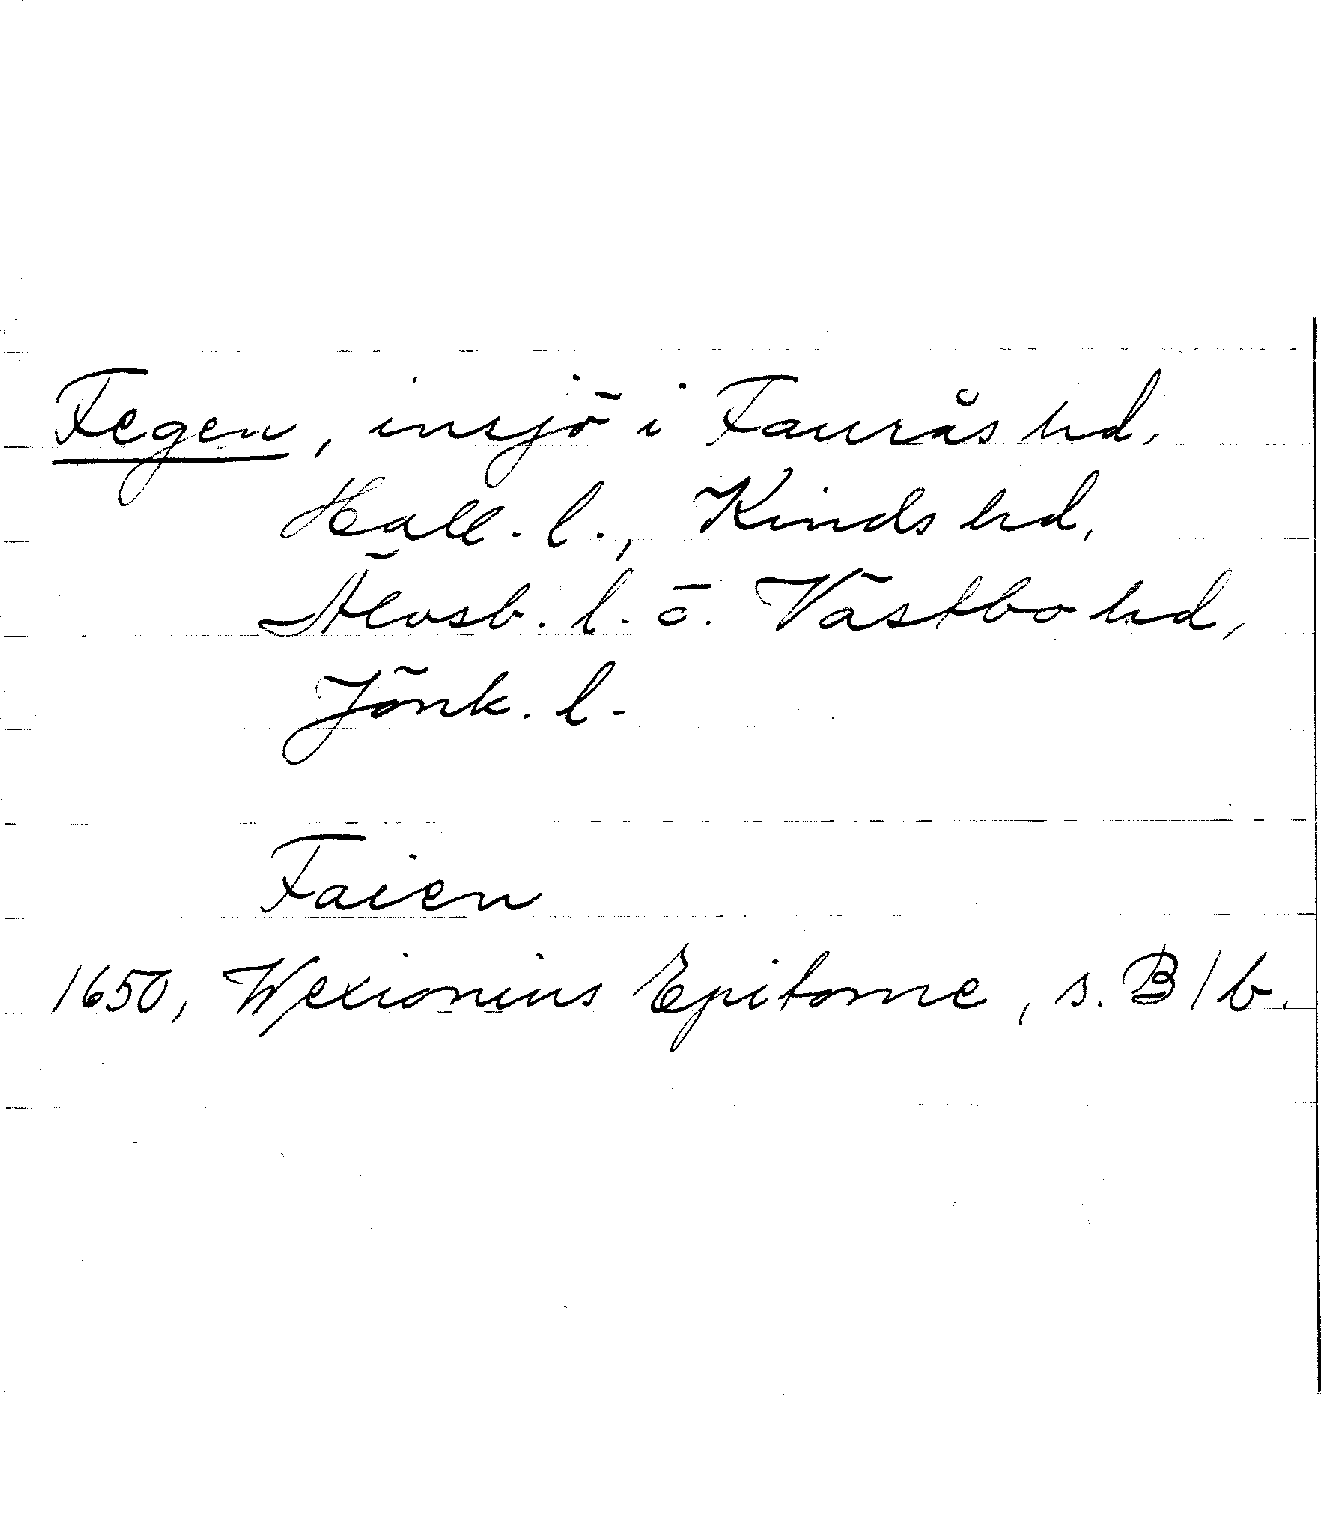 Fegen, insjö i Faurås hd,
Hall. l., Kinds hd,
Älvsb. l. o. Västbo hd,
Jönk. l.
Faien
1650, Wexionius Epitome, s. B 1 b.